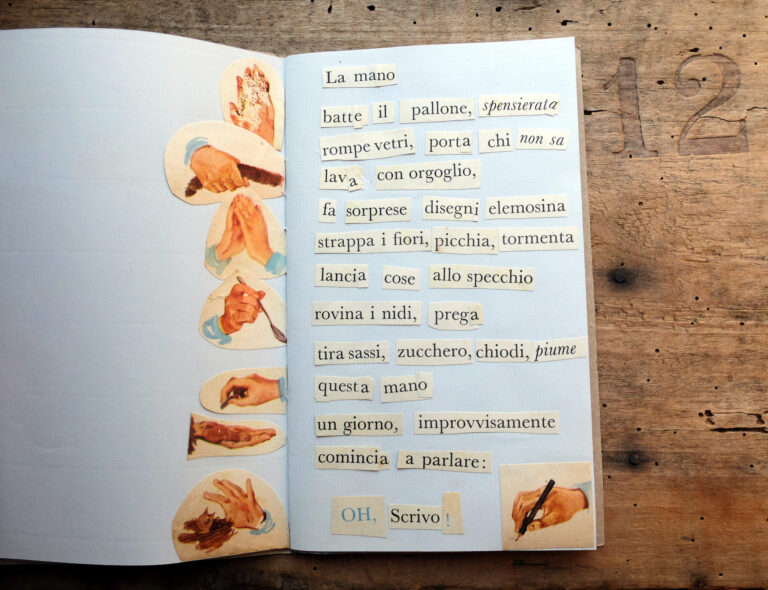 La mano
batte il pallone, spensierata
rompe vetri, porta chi non sa
lava con orgoglio,
fa sorprese disegni elemosina
strappa i fiori, picchia, tormenta
lancia cose allo specchio
rovina i nidi, prega
tira sassi, zucchero, chiodi, piume
questa mano
un giorno, improvvisamente
comincia a parlare:
OH, Scrivo!
12